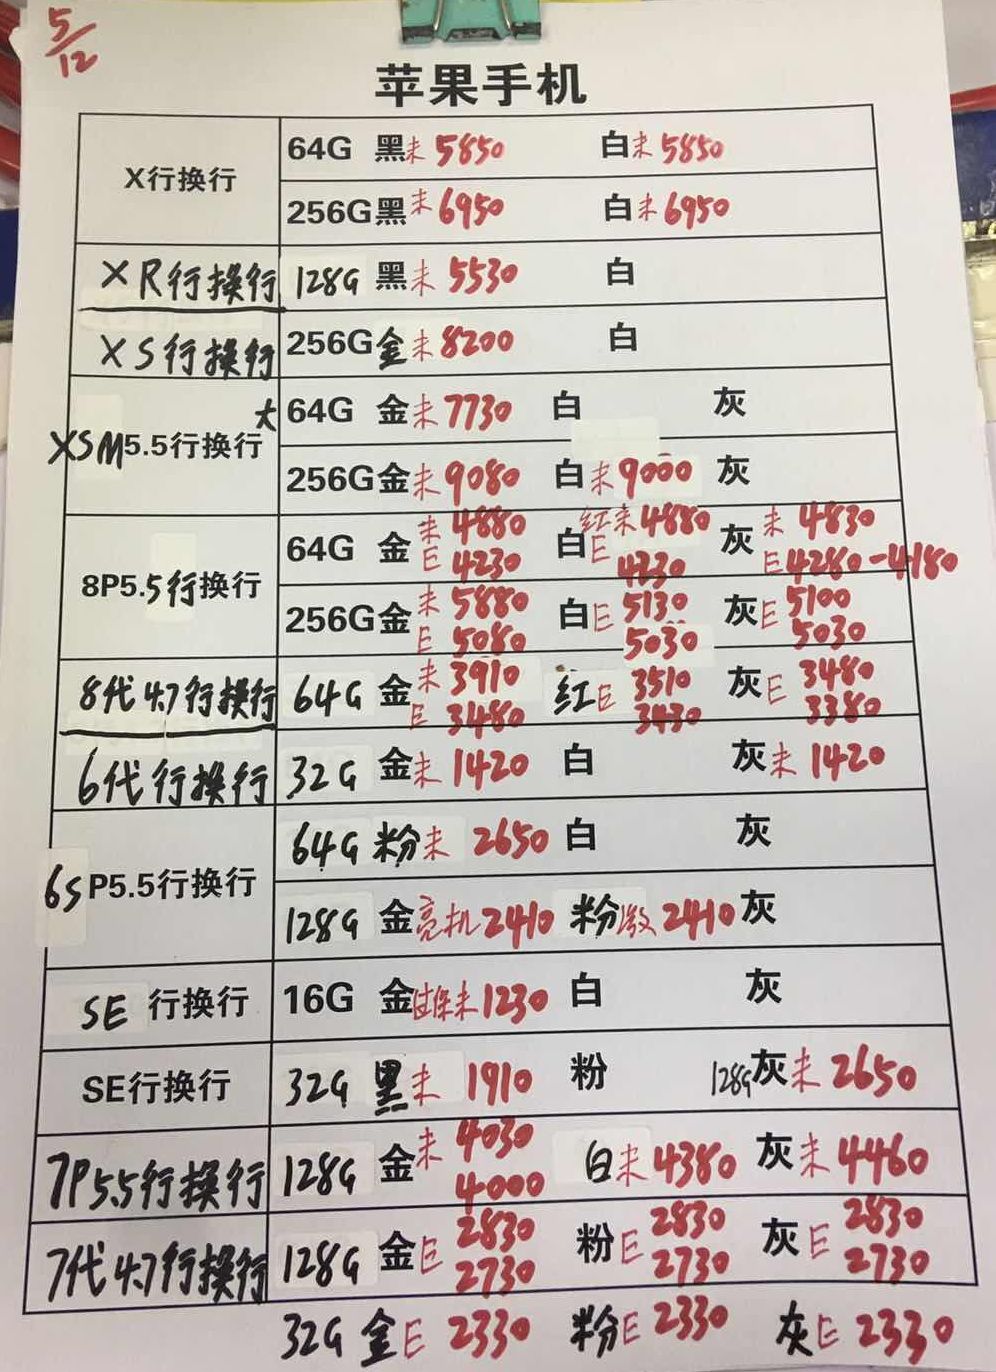 5/12
苹果手机
X行换行
64G 黑未5850 白未5850
256G黑未6950 白未6950
XR行换行 128G 黑未5530 白
XS行换行 256G金未8200 白
XSM5.5行换行 大
64G 金未7730 白 灰
256G金未9080 白未9000 灰
8P5.5行换行
64G 金 未4880 白 红未4880 灰 未4830
E4230 E4230 E4280-4180
256G金 未5880 白E5130 灰E5100
E5080 5030 5030
8代4.7行换行 64G 金未3910 红E3510 灰E3480
E3480 3430 3380
6代行换行 32G 金未1420 白 灰未1420
6SP5.5行换行
64G 粉未2650 白 灰
128G 金亮机2410 粉激2410 灰
SE 行换行 16G 金过保未1230 白 灰
SE行换行 32G 黑未1910 粉 128G灰未2650
7P5.5行换行 128G 金未4030 白未4380 灰未4460
4000
7代4.7行换行 128G 金E2830 粉E2830 灰E2830
2730 2730 2730
32G 金E2330 粉E2330 灰E2330